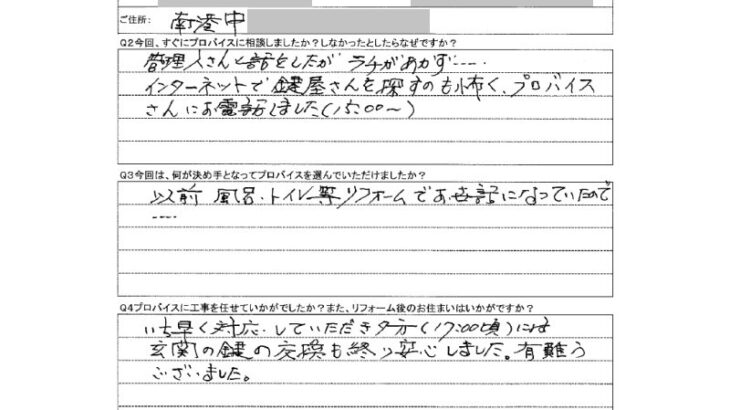 ご住所: 南港中
Q2今回、すぐにプロバイスに相談しましたか？しなかったとしたらなぜですか？
管理人さんと話をしたが ラチがあかず……
インターネットで鍵屋さんを探すのも怖く、プロバイス
さんにお電話しました(15:00〜)
Q3今回は、何が決め手となってプロバイスを選んでいただけましたか？
以前 風呂・トイレ等リフォームでお世話になっていたので
……
Q4プロバイスに工事を任せていかがでしたか？また、リフォーム後のお住まいはいかがですか？
いち早く対応していただき夕方(17:00頃)には
玄関の鍵の交換も終り安心しました。有難う
ございました。